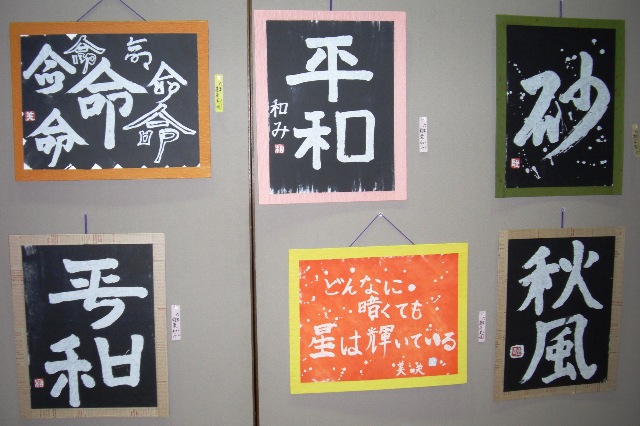 命 命 命
命 命
命 命
美
平
和
和み
砂
平
和
どんなに
暗くても
星は輝いている
美咲
秋
風